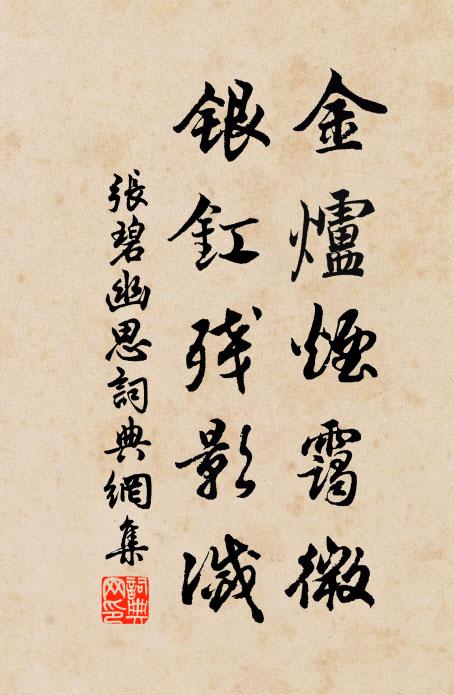 金爐煙靄微
銀釭残影滅
張碧幽思詞典網集
詞典